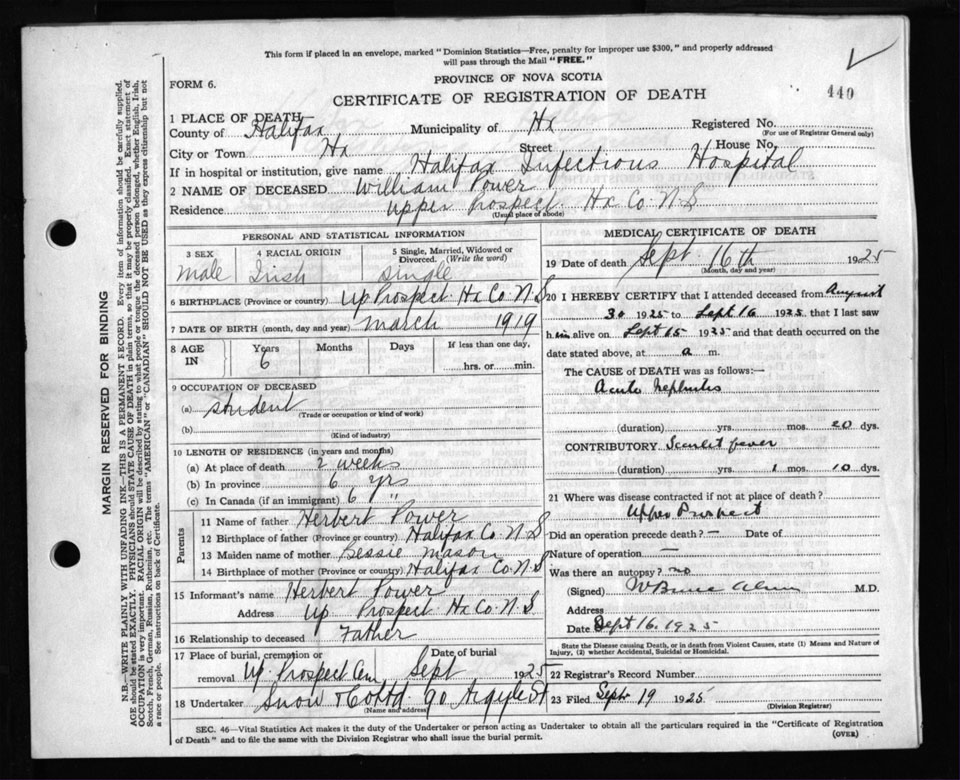 This form if placed in an envelope, marked "Dominion Statistics—Free, penalty for improper use $300," and properly addressed
will pass through the Mail "FREE."
FORM 6.
PROVINCE OF NOVA SCOTIA
440
CERTIFICATE OF REGISTRATION OF DEATH
1 PLACE OF DEATH
County of Halifax Municipality of Hx Registered No.
(For use of Registrar General only)
City or Town Hx Street House No.
If in hospital or institution, give name Halifax Infectious Hospital
2 NAME OF DECEASED William Power
Residence Upper Prospect Hx Co. N S
(Usual place of abode)
PERSONAL AND STATISTICAL INFORMATION
3 SEX 4 RACIAL ORIGIN 5 Single, Married, Widowed or
Divorced. (Write the word)
male Irish single
6 BIRTHPLACE (Province or country) Up Prospect Hx Co. N. S
7 DATE OF BIRTH (month, day and year) march 1919
8 AGE IN Years Months Days If less than one day,
6 hrs. or min.
9 OCCUPATION OF DECEASED
(a) student
(Trade or occupation or kind of work)
(b)
(Kind of industry)
10 LENGTH OF RESIDENCE (in years and months)
(a) At place of death 2 weeks
(b) In province 6 yrs
(c) In Canada (if an immigrant) 6 "
Parents
11 Name of father Herbert Power
12 Birthplace of father (Province or country) Halifax Co. N. S
13 Maiden name of mother Bessie Mason
14 Birthplace of mother (Province or country) Halifax Co. N. S
15 Informant's name Herbert Power
Address Up Prospect Hx Co. N. S.
16 Relationship to deceased Father
17 Place of burial, cremation or Date of burial
removal Up. Prospect Cem Sept 1925
18 Undertaker Snow & Co Ltd 90 Argyle St
(Name and address)
MEDICAL CERTIFICATE OF DEATH
19 Date of death Sept 16th 1925
(Month, day and year)
20 I HEREBY CERTIFY that I attended deceased from August
30 1925 to Sept 16 1925 that I last saw
him alive on Sept 15 1925 and that death occurred on the
date stated above, at a m.
The CAUSE of DEATH was as follows:—
Acute nephritis
(duration) yrs. mos. 20 dys.
CONTRIBUTORY Scarlet fever
(duration) yrs. 1 mos. 10 dys.
21 Where was disease contracted if not at place of death?
Upper Prospect
Did an operation precede death? — Date of
Nature of operation —
Was there an autopsy? no
(Signed) W Bruce M.D.
Address
Date Sept 16. 1925
State the Disease causing Death, or in death from Violent Causes, state (1) Means and Nature of
Injury, (2) whether Accidental, Suicidal or Homicidal.
22 Registrar's Record Number
23 Filed Sept 19 1925
(Division Registrar)
SEC. 46—Vital Statistics Act makes it the duty of the Undertaker or person acting as Undertaker to obtain all the particulars required in the "Certificate of Registration
of Death" and to file the same with the Division Registrar who shall issue the burial permit.
(OVER)
MARGIN RESERVED FOR BINDING
N.B.—WRITE PLAINLY WITH UNFADING INK—THIS IS A PERMANENT RECORD. Every item of information should be carefully supplied.
AGE should be stated EXACTLY. PHYSICIANS should STATE CAUSE OF DEATH in plain terms, so that it may be properly classified. Exact statement of
OCCUPATION is very important. RACIAL ORIGIN will be described by stating to what people or tongue the deceased person belonged, whether English, Irish,
Scotch, French, German, Russian, Ruthenian, etc. The terms "AMERICAN" or "CANADIAN" SHOULD NOT BE USED as they express citizenship but not
a race or people. See instructions on back of Certificate.